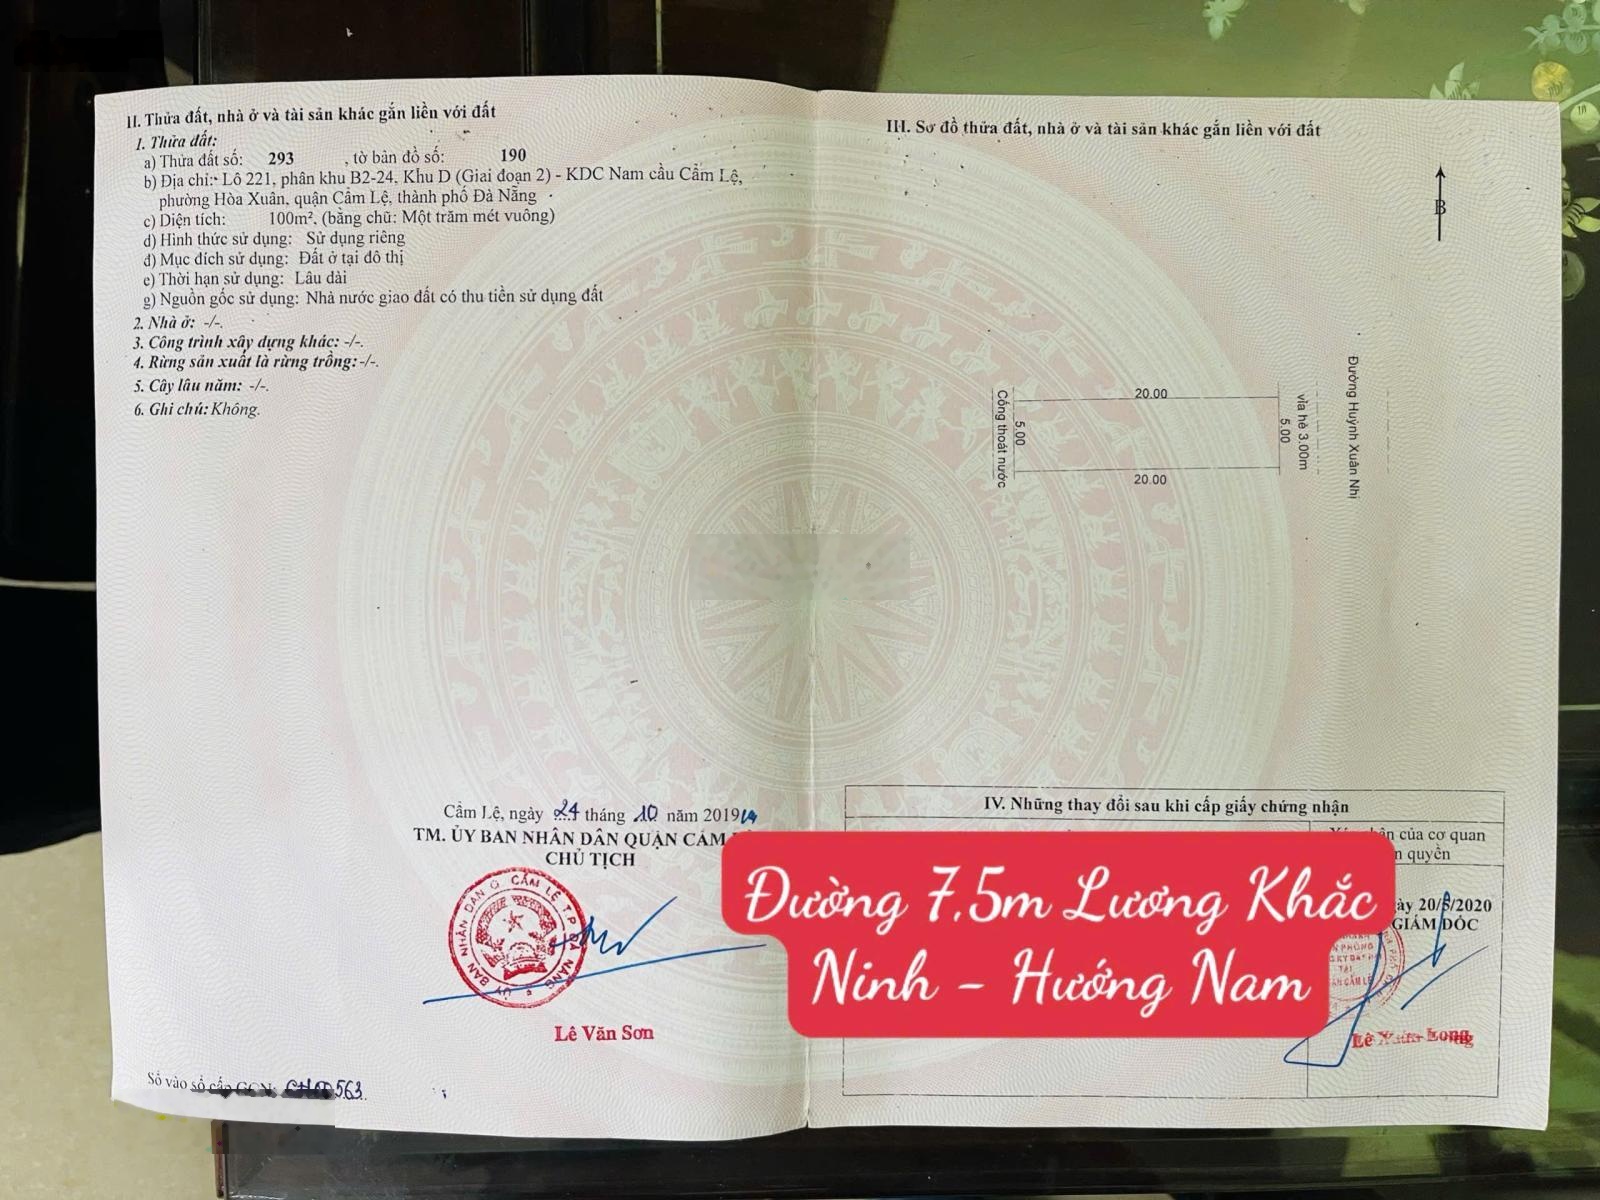 II. Thửa đất, nhà ở và tài sản khác gắn liền với đất
1. Thửa đất:
a) Thửa đất số: 293 , tờ bản đồ số: 190
b) Địa chỉ: Lô 221, phân khu B2-24, Khu D (Giai đoạn 2) - KDC Nam cầu Cẩm Lệ,
phường Hòa Xuân, quận Cẩm Lệ, thành phố Đà Nẵng
c) Diện tích: 100m², (bằng chữ: Một trăm mét vuông)
d) Hình thức sử dụng: Sử dụng riêng
đ) Mục đích sử dụng: Đất ở tại đô thị
e) Thời hạn sử dụng: Lâu dài
g) Nguồn gốc sử dụng: Nhà nước giao đất có thu tiền sử dụng đất
2. Nhà ở: -/-.
3. Công trình xây dựng khác: -/-.
4. Rừng sản xuất là rừng trồng: -/-.
5. Cây lâu năm: -/-.
6. Ghi chú: Không.
Cẩm Lệ, ngày 24 tháng 10 năm 2019
TM. ỦY BAN NHÂN DÂN QUẬN CẨM
CHỦ TỊCH
ỦY BAN NHÂN DÂN Q. CẨM LỆ T.P ĐÀ NẴNG
Lê Văn Sơn
Số vào sổ cấp GCN: 563
III. Sơ đồ thửa đất, nhà ở và tài sản khác gắn liền với đất
B
20.00
Cống thoát nước
5.00
5.00
vỉa hè 3.00m
Đường Huỳnh Xuân Nhị
20.00
IV. Những thay đổi sau khi cấp giấy chứng nhận
của cơ quan
quyền
20/5/2020
GIÁM ĐỐC
Lê Xuân Long
Đường 7,5m Lương Khắc
Ninh - Hướng Nam